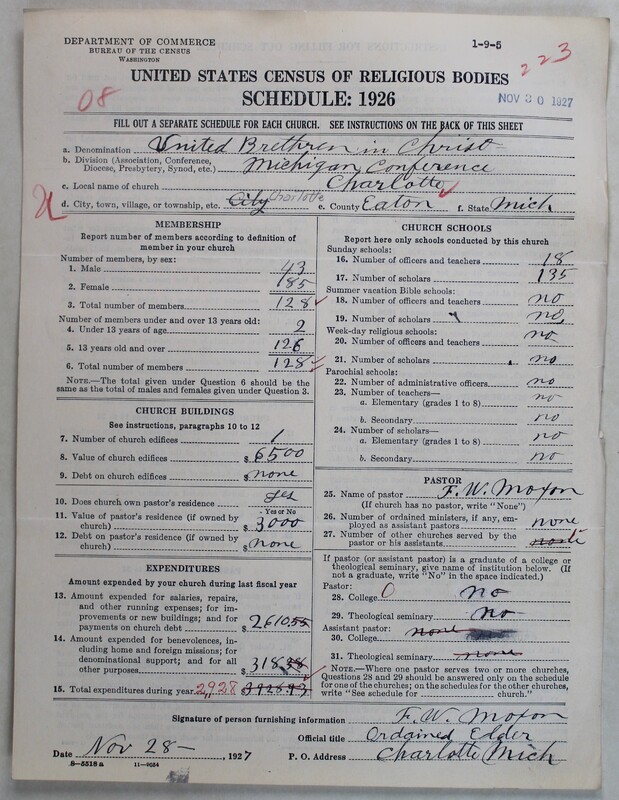 DEPARTMENT OF COMMERCE
BUREAU OF THE CENSUS
WASHINGTON
1-9-5
223
08
UNITED STATES CENSUS OF RELIGIOUS BODIES
SCHEDULE: 1926
NOV 30 1927
FILL OUT A SEPARATE SCHEDULE FOR EACH CHURCH. SEE INSTRUCTIONS ON THE BACK OF THIS SHEET
a. Denomination United Brethren in Christ
b. Division (Association, Conference, Diocese, Presbytery, Synod, etc.) Michigan Conference
c. Local name of church Charlotte
d. City, town, village, or township, etc. City Charlotte e. County Eaton f. State Mich
MEMBERSHIP
Report number of members according to definition of member in your church
Number of members, by sex:
1. Male 43
2. Female 185
3. Total number of members 128
Number of members under and over 13 years old:
4. Under 13 years of age 2
5. 13 years old and over 126
6. Total number of members 128
NOTE.—The total given under Question 6 should be the same as the total of males and females given under Question 3.
CHURCH BUILDINGS
See instructions, paragraphs 10 to 12
7. Number of church edifices 1
8. Value of church edifices $ 6500
9. Debt on church edifices $ none
10. Does church own pastor's residence yes
Yes or No
11. Value of pastor's residence (if owned by church) $ 3000
12. Debt on pastor's residence (if owned by church) $ none
EXPENDITURES
Amount expended by your church during last fiscal year
13. Amount expended for salaries, repairs, and other running expenses; for improvements or new buildings; and for payments on church debt $ 2610.55
14. Amount expended for benevolences, including home and foreign missions; for denominational support; and for all other purposes $ 318
15. Total expenditures during year 2,928 $
CHURCH SCHOOLS
Report here only schools conducted by this church
Sunday schools:
16. Number of officers and teachers 18
17. Number of scholars 135
Summer vacation Bible schools:
18. Number of officers and teachers no
19. Number of scholars no
Week-day religious schools:
20. Number of officers and teachers no
21. Number of scholars no
Parochial schools:
22. Number of administrative officers no
23. Number of teachers—
a. Elementary (grades 1 to 8) no
b. Secondary no
24. Number of scholars—
a. Elementary (grades 1 to 8) no
b. Secondary no
PASTOR
25. Name of pastor F. W. Moxon
(If church has no pastor, write "None")
26. Number of ordained ministers, if any, employed as assistant pastors none
27. Number of other churches served by the pastor or his assistants none
If pastor (or assistant pastor) is a graduate of a college or theological seminary, give name of institution below. (If not a graduate, write "No" in the space indicated.)
Pastor:
28. College 0 no
29. Theological seminary no
Assistant pastor:
30. College none
31. Theological seminary none
NOTE.—Where one pastor serves two or more churches, Questions 28 and 29 should be answered only on the schedule for one of the churches; on the schedules for the other churches, write "See schedule for church."
Signature of person furnishing information F. W. Moxon
Official title Ordained Elder
Date Nov 28— , 1927 P. O. Address Charlotte Mich
8—5518a 11—9034